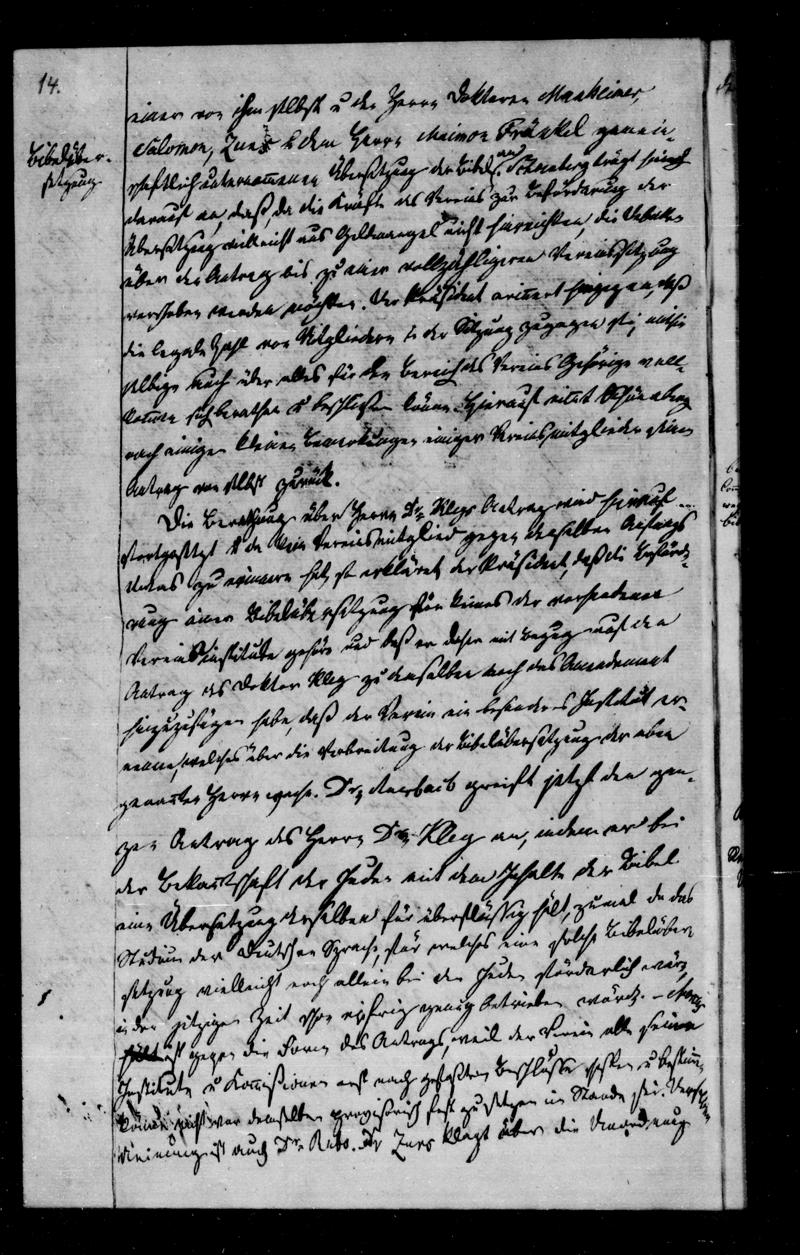 14.
Bibelüber-
setzung
einer von ihm selbst u den Herrn Doktoren Manheimer,
Salomon, Zunz & dem Herrn Maimon Fränkel gemein-
schaftlich unternommenen Übersetzung der Bibel. Schönberg trägt hierauf
darauf an, daß, da die Kräfte des Vereins zur Beförderung der
Übersetzung vielleicht aus Geldmangel nicht hinreichten, die Debatten
über den Antrag bis zu einer vollzähligeren Vereinssitzung
verschoben werden möchten. Der Präsident erinnert hingegen, daß
die legale Zahl von Mitgliedern in der Sitzung zugegen sei, mithin
selbige auch über alles für den Bereich des Vereins Gehörige voll-
kommen sich berathen & beschließen könne. Hierauf nimt Schönberg
nach einigen kleinen Bemerkungen einiger Vereinsmitglieder seinen
Antrag von selbst zurück.
Die Berathung über Herrn Dr. Kleys Antrag wird hierauf
fortgesetzt & da kein Vereinsmitglied gegen denselben Anfangs
etwas zu erinnern hat, so erklärt der Präsident, daß die Beförde-
rung einer Bibelübersetzung für keines der vorhandenen
Vereinsinstitute gehöre und daß er daher mit Bezug auf den
Antrag des Doktor Kley zu demselben noch das Amendement
hinzuzufügen habe, daß der Verein ein besonderes Institut er-
nenne, welches über die Verbreitung der Bibelübersetzung der oben
genannten Herrn wache. Dr. Auerbach greift jetzt den gan-
zen Antrag des Herrn Dr. Kley an, indem er bei
der Bekantschaft der Juden mit dem Inhalte der Bibel
eine Übersetzung derselben für überflüssig hält, zumal da das
Studium der deutschen Sprache, für welches eine solche Bibelüber-
setzung vielleicht noch allein bei den Juden förderlich wäre,
in der jetzigen Zeit schon eifrig genug betrieben würde. –
ist gegen die Form des Antrags, weil der Verein alle seine
Institute u Kommissionen erst nach gefaßtem Beschlusse
könne, nicht vor demselben provisorisch fest zu setzen im Stande sei.
Meinung ist auch Dr. Rubo. Dr Zunz klagt über die Unordnung